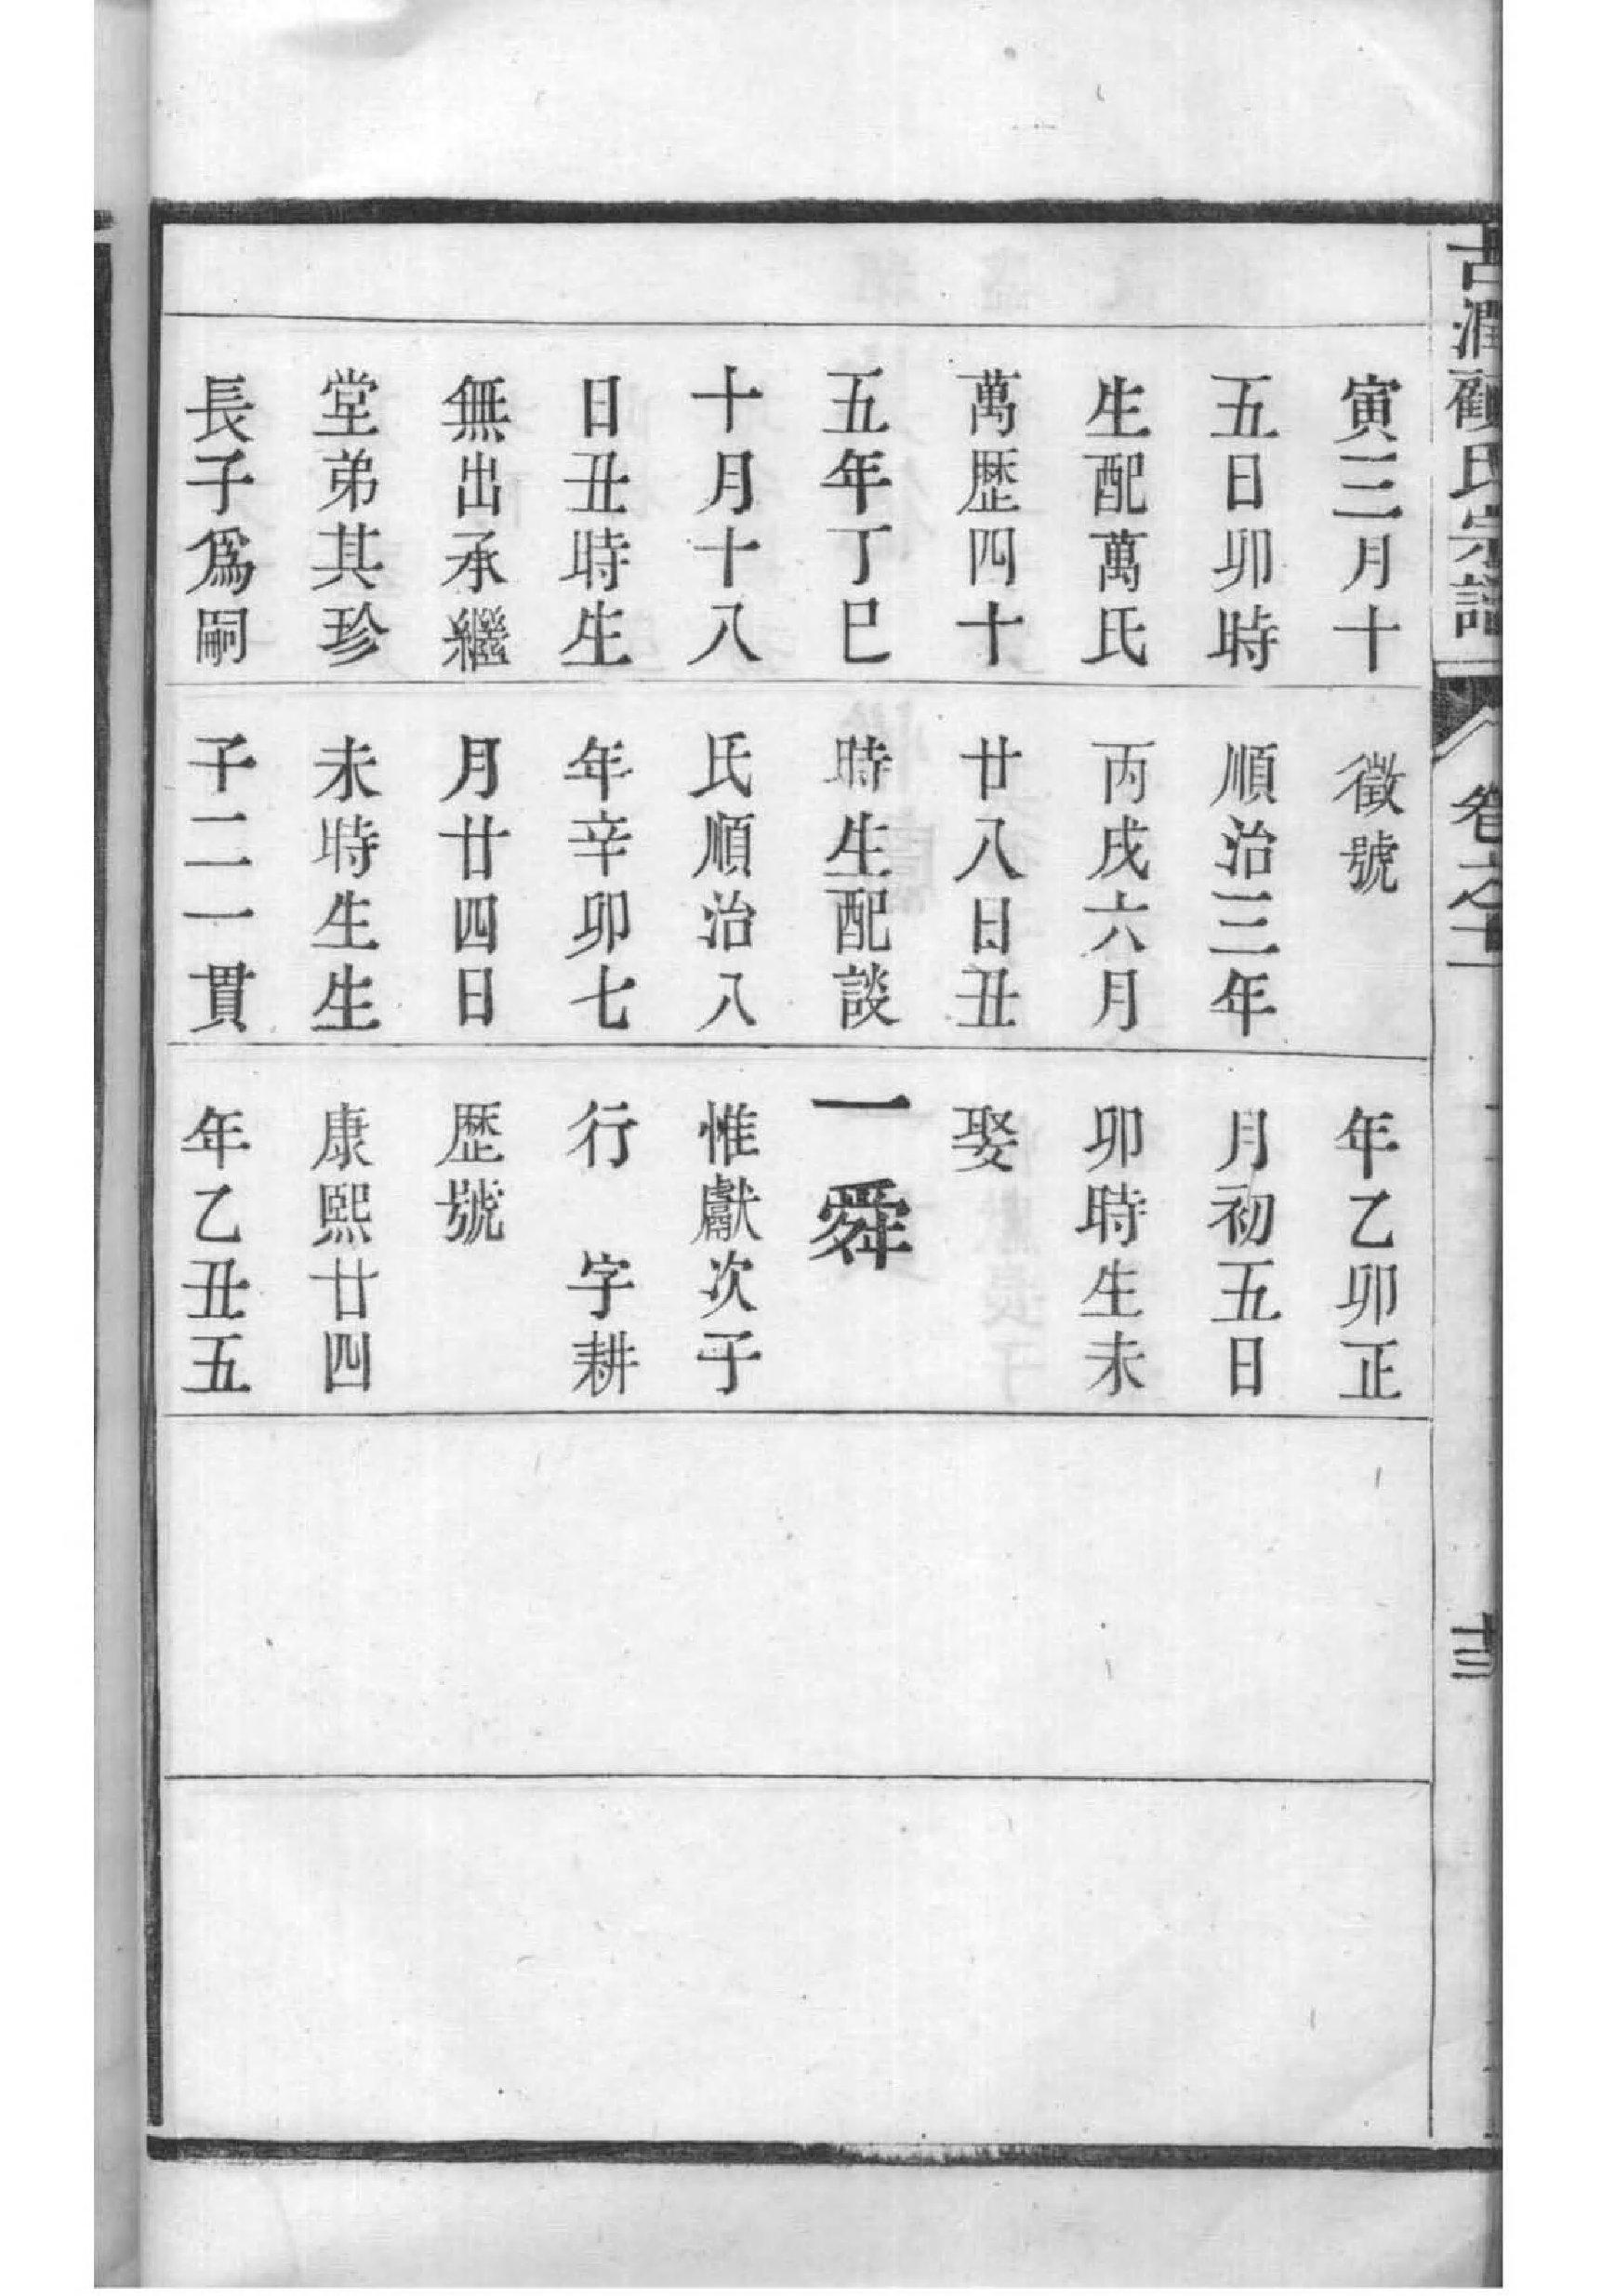 古潤顧氏宗譜
卷之十二
寅三月十
五日卯時
生配萬氏
萬歷四十
五年丁巳
十月十八
日丑時生
無出承繼
堂弟其珍
長子爲嗣
徵號
順治三年
丙戌六月
廿八日丑
時生配談
氏順治八
年辛卯七
月廿四日
未時生生
子二一貫
年乙卯正
月初五日
卯時生未
娶
一舜
惟獻次子
行 字耕
歷號
康熙廿四
年乙丑五